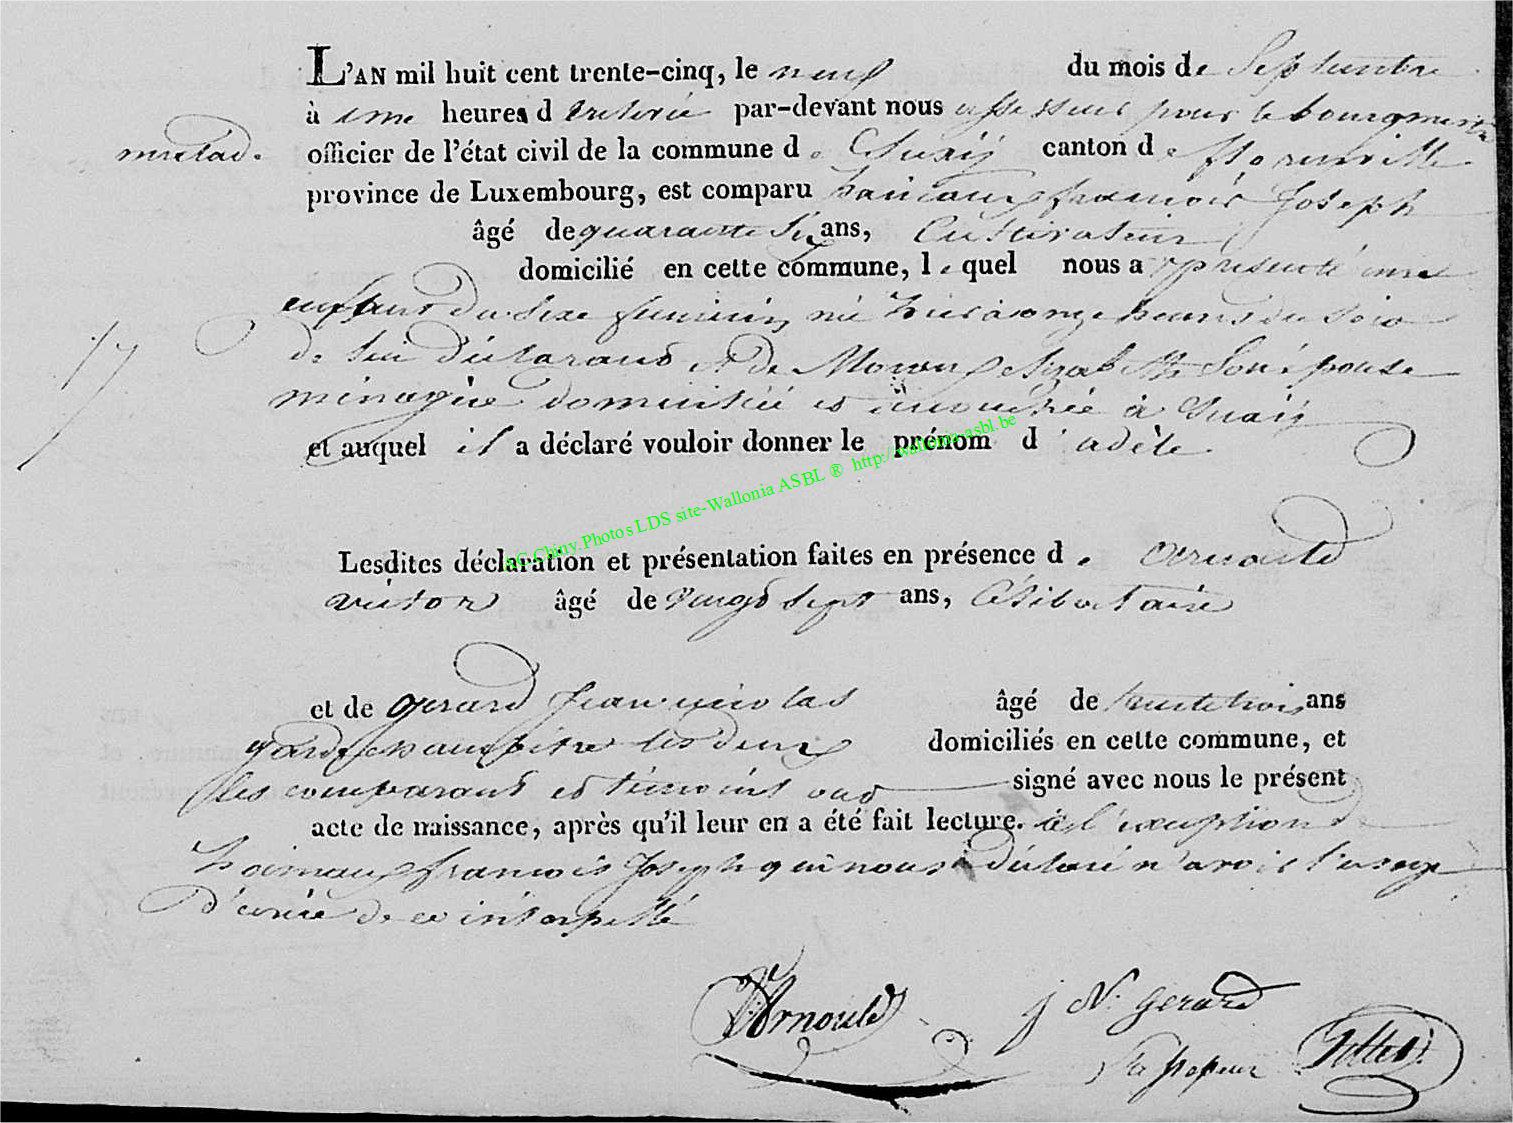 L'AN mil huit cent trente-cinq, le neuf du mois de Septembre
à une heures d relevée par-devant nous assesseur pour le bourgmestre
officier de l'état civil de la commune de Suxÿ canton de florenville
province de Luxembourg, est comparu hainaux françois Joseph
âgé de quarante Six ans, Cultivateur
domicilié en cette commune, lequel nous a présenté une
enfant du Sexe feminin né hier à onze heures du Soir
de lui déclarant et de elizabeth Son épouse
ménagère domiciliée et accouchée à Suxÿ
et auquel il a déclaré vouloir donner le prénom d'adèle
AC.Chiny.Photos LDS site-Wallonia ASBL ® http://wallonia-asbl.be
Lesdites déclaration et présentation faites en présence de arnould
victor âgé de vingt sept ans, Célibataire
et de gerard jean nicolas âgé de trente trois ans
garde champêtre les deux domiciliés en cette commune, et
les comparant et témoins ont signé avec nous le présent
acte de naissance, après qu'il leur en a été fait lecture. à l'exception de
hainaux françois Joseph qui nous a déclaré n'avoir l'usage
d'écrire de ce interpellé
VArnould
j N. gerard